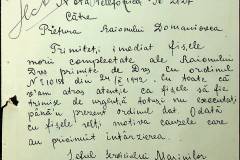 Notă Telefonică
Către
Pretura Raionului Domanovca
Trimiteți imediat fișele
morii complectate ale Raionului
Dvs primite de Dvs cu ordinul
din 24/X 1942. Cu toate că
v'am atras atenția, ca fișele să fie
trimise de urgență totuși nu executați
până'n prezent ordinul dat. Odată
cu fișele veți motiva cauzele care
au pricinuit întârzierea.
Șeful Serviciului Morărit